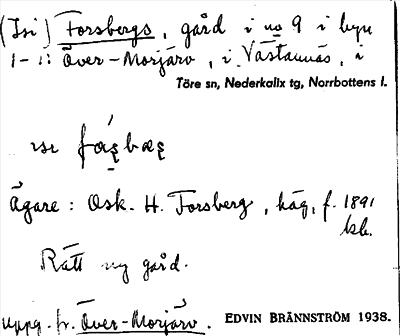 (Isi) Forsbergs, gård i no 9 i byn
1-1: Över-Morjärv, i Västannäs, i
Töre sn, Nederkalix tg, Norrbottens l.
Ägare: Osk. H. Forsberg, häg, f. 1891
Rätt ny gård.
uppg. fr. Över-Morjärv. EDVIN BRÄNNSTRÖM 1938.